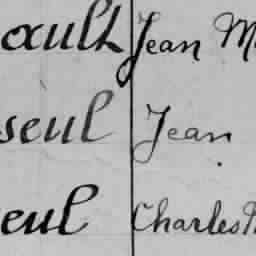 oault Jean M
seul Jean
eul Charles M